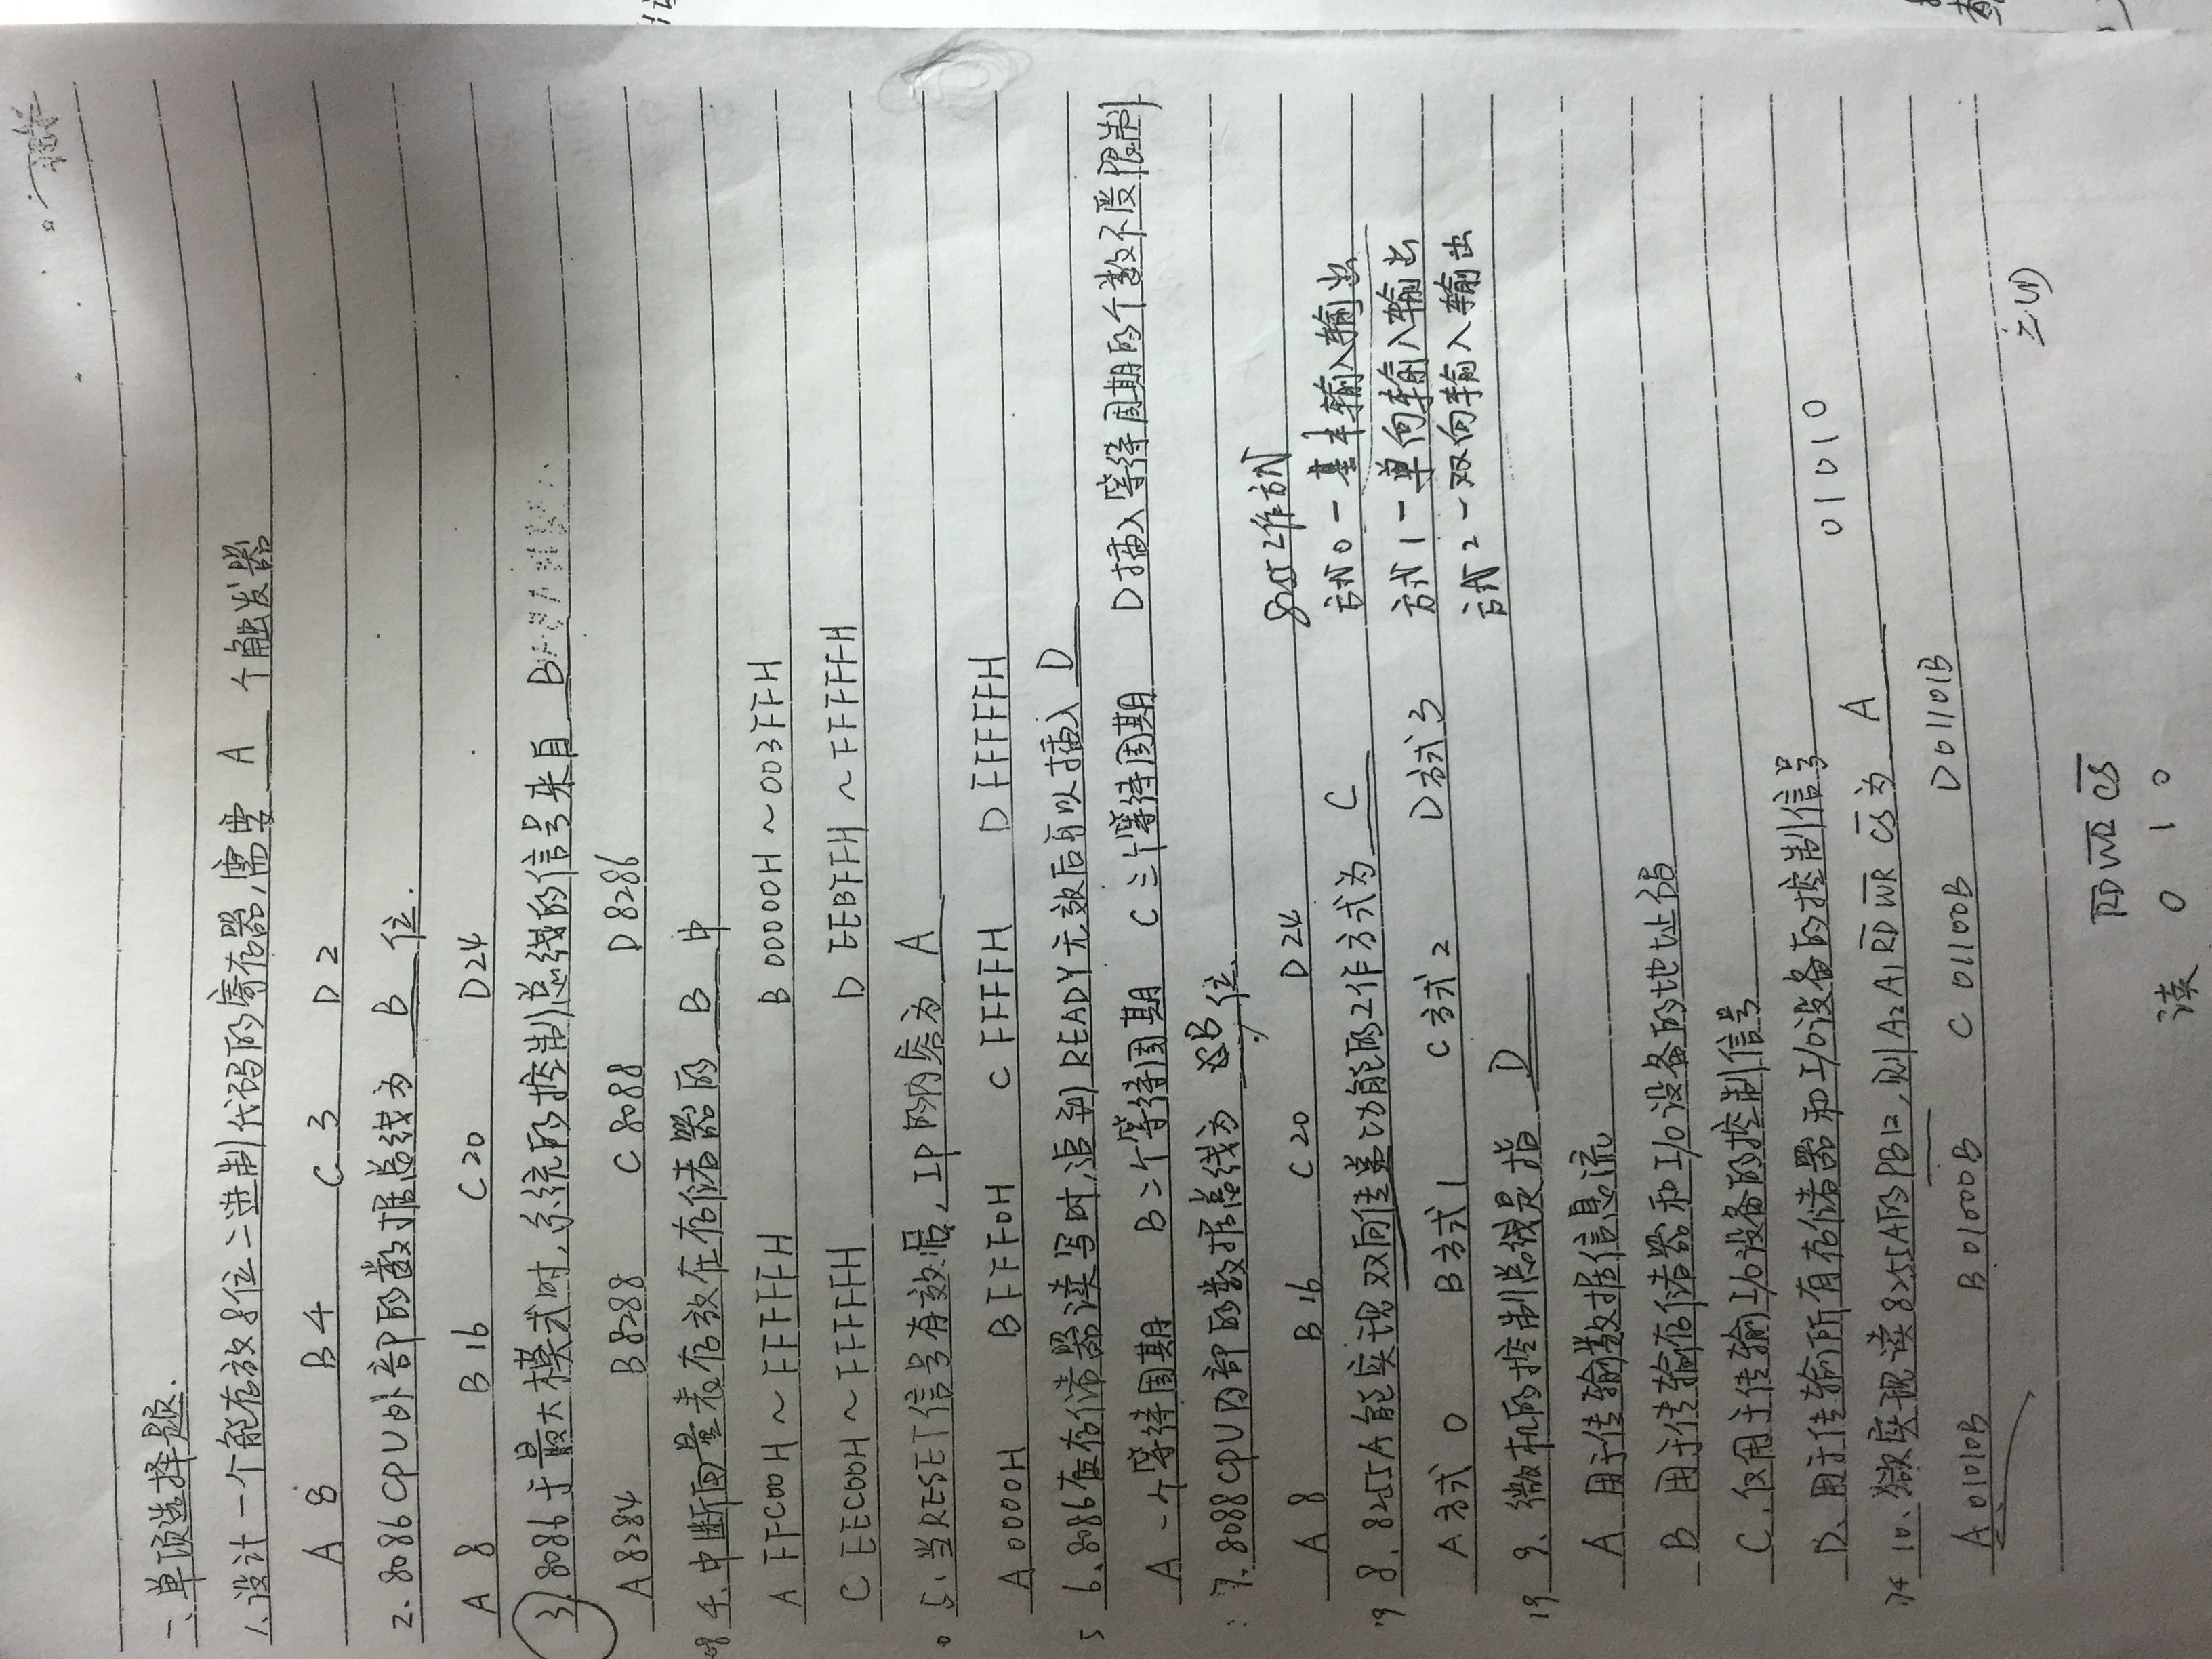 二、单项选择题.
1、设计一个能存放8位二进制代码的寄存器,需要 A 个触发器
A 8 B 4 C 3 D 2
2、8086CPU外部的数据总线为 B 位.
A 8 B 16 C 20 D 24
3、8086于最大模式时,系统的控制总线的信号来自 B
A 8284 B 8288 C 8088 D 8286
4、中断向量表存放在存储器的 B 中
A FFC00H～FFFFFH B 00000H～003FFH
C EEC00H～FFFFFH D EEBFFH～FFFFFH
5、当RESET信号有效后,IP的内容为 A
A 0000H B FFF0H C FFFFH D FFFFFH
5 6、8086在存储器读写时,遇到READY无效后可以插入 D
A 一个等待周期 B 二个等待周期 C 三个等待周期 D 插入等待周期的个数不受限制
7、8088CPU内部的数据总线为 B 位.
A 8 B 16 C 20 D 24
8255工作方式
方式0－基本输入输出
方式1－单向输入输出
方式2－双向输入输出
8、8255A能实现双向传递功能的工作方式为 C
A 方式0 B 方式1 C 方式2 D 方式3
19 9、微机的控制总线是指 D
A 用于传输数据信息流
B 用于传输存储器和I/O设备的地址码
C、仅用于传输I/O设备的控制信号
D、用于传输所有存储器和I/O设备的控制信号
01010
10、欲实现读8255A的PB口,则A₂A₁R̅D̅ W̅R̅ C̅S̅为 A
A 01010B B 01000B C 01100B D 01101B
二(1)
R̅D̅ W̅R̅ C̅S̅
读 0 1 0